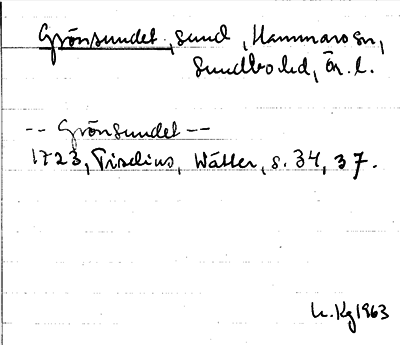 Grönsundet, sund, Hammaro sn,
Sundbo hd, Ör. l.
-- Grönsundet --
1723, Tiselius, Wätter, s. 34, 37.
Kg 1963